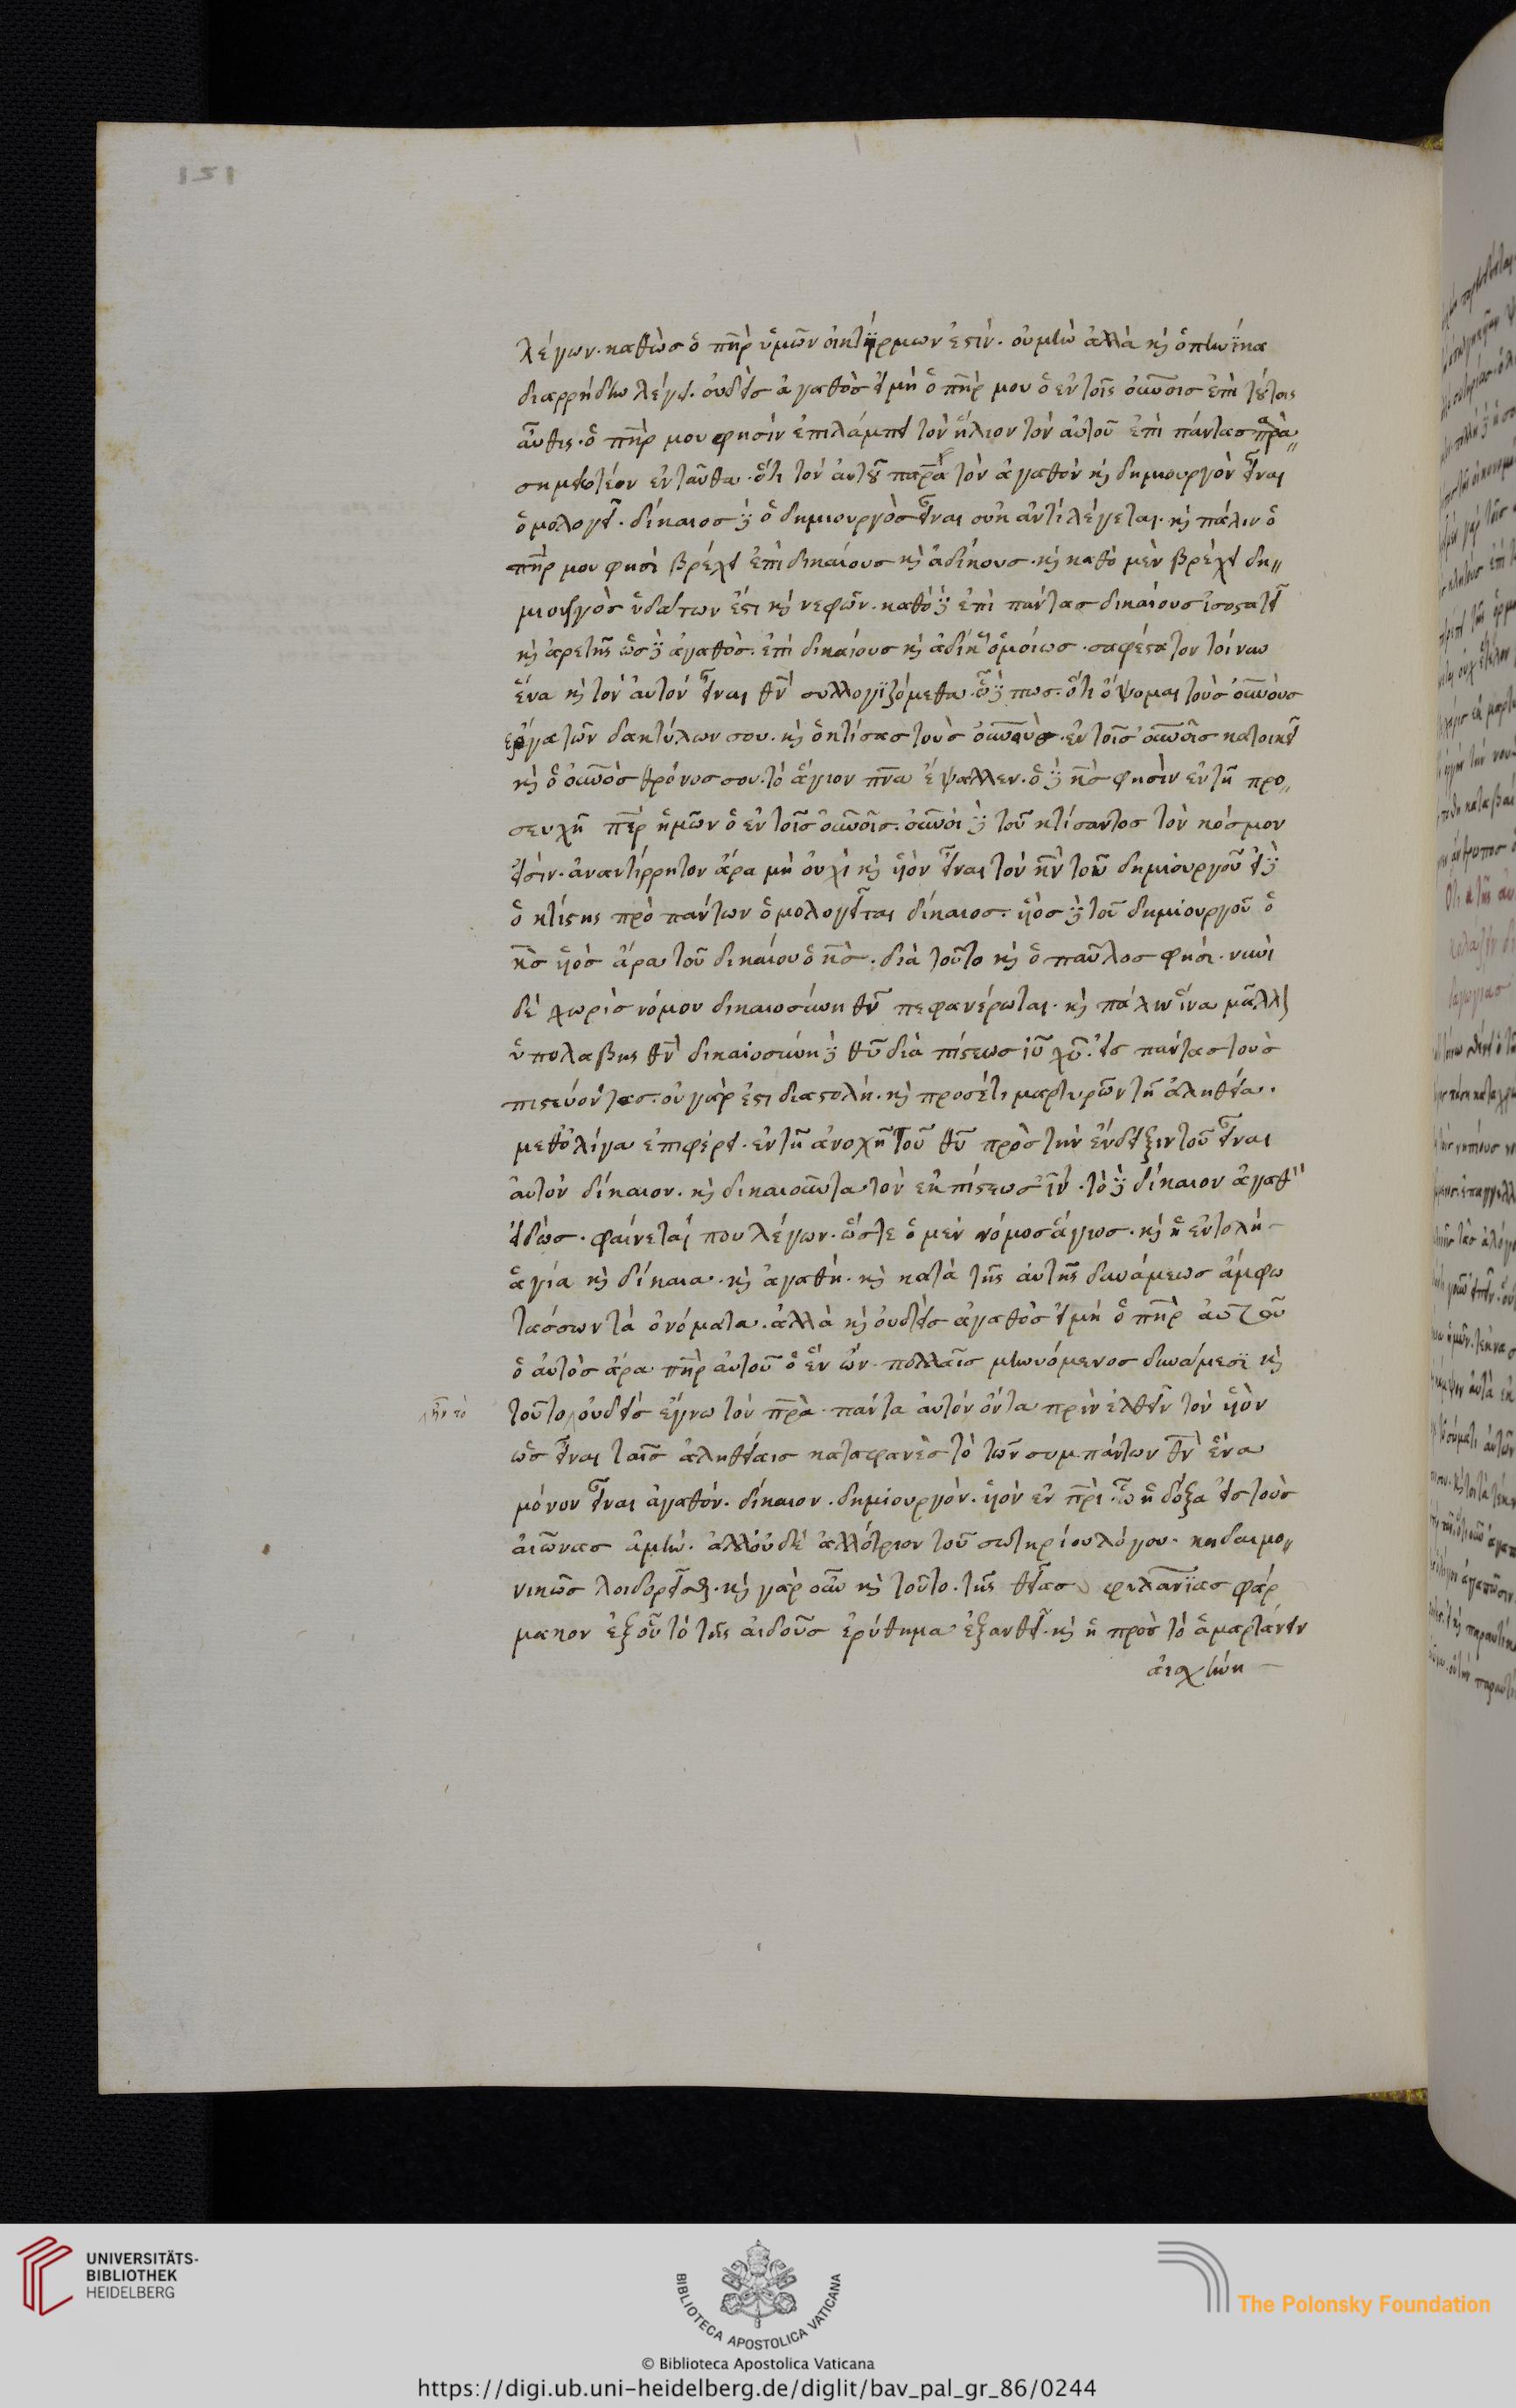 121
λέγων. καθὼσ ὁ πη̅ρ ὑμῶν οἰκτίρμων ἐστίν. οὐ μὴν ἀλλὰ κὶ ὁπηνίκα
διαρρήδην λέγει. οὐδεὶσ ἀγαθὸσ εἰ μὴ ὁ πη̅ρ μου ὁ ἐν τοῖς οὐν̅οισ ἐπὶ τούτοις
αὖθις. ὁ πη̅ρ μου φησὶν ἐπιλάμπει τὸν ἥλιον τὸν αὐτοῦ ἐπὶ πάντασ πρ̅α
σημειωτέον ἐνταῦθα. ὅτι τὸν αὐτοῦ πατρ̅α τὸν ἀγαθὸν κὶ δημιουργὸν εἶναι
ὁμολογεῖ. δίκαιοσ δὲ ὁ δημιουργὸσ εἶναι οὐκ ἀντιλέγεται. κὶ πάλιν ὁ
πη̅ρ μου φησὶ βρέχει ἐπὶ δικαίουσ κὶ ἀδίκουσ. κὶ καθὸ μὲν βρέχει δη
μιουργὸσ ὑδάτων ἐστι κὶ νεφῶν. καθὸ δὲ ἐπὶ πάντασ δικαίουσ ἰσοστατεῖ
κὶ ἀρετῆς ὡσ δὲ ἀγαθὸσ. ἐπὶ δικαίουσ κὶ ἀδίκους ὁμοίωσ. σαφέστατον τοίνυν
ἕνα κὶ τὸν αὐτὸν εἶναι θν̅ συλλογιζόμεθα. ὧδέ πωσ. ὅτι ὄψομαι τοὺσ οὐν̅ουσ
ἔργα τῶν δακτύλων σου. κὶ ὁ κτίσασ τοὺσ οὐν̅ουσ. ἐν τοῖσ οὐν̅οισ κατοικεῖ
κὶ ὁ οὐν̅οσ θρόνοσ σου. τὸ ἅγιον πν̅α ἔψαλλεν. ὁ δὲ κ̅σ φησὶν ἐν τῆ προ
σευχῆ πε̅ρ ἡμῶν ὁ ἐν τοῖσ οὐν̅οισ. οὐν̅οι δὲ τοῦ κτίσαντοσ τὸν κόσμον
εἰσίν. ἀναντίρρητον ἄρα μὴ οὐχὶ κὶ ὑὸν εἶναι τὸν κν̅ τοῦ δημιουργοῦ εἰ δὲ
ὁ κτίστης πρὸ πάντων ὁμολογεῖται δίκαιοσ. ὑὸσ δὲ τοῦ δημιουργοῦ ὁ
κ̅σ ὑὸσ ἄρα τοῦ δικαίου ὁ κ̅σ. διὰ τοῦτο κὶ ὁ παῦλοσ φησί. νυνὶ
δὲ χωρὶσ νόμου δικαιοσύνη θυ̅ πεφανέρωται. κὶ πάλιν ἵνα μᾶλλ
ὑπολαβης θν̅ δικαιοσύνη δὲ θυ̅ διὰ πίστεωσ ιυ̅ χυ̅. εἰσ πάντασ τοὺσ
πιστεύοντασ. οὐ γάρ ἐστι διαστολή. κὶ προσέτι μαρτυρῶν τῆ ἀληθεία.
μετ᾽ ὀλίγα ἐπιφέρει. ἐν τῆ ἀνοχῆ τοῦ θυ̅ πρὸσ τὴν ἔνδειξιν τοῦ εἶναι
αὐτὸν δίκαιον. κὶ δικαιοῦντα τὸν ἐκ πίστεωσ ιν̅. τὸ δὲ δίκαιον ἀγαθὸν
εἰδὼσ. φαίνεταί που λέγων. ὥστε ὁ μὲν νόμοσ ἅγιοσ. κὶ ἡ ἐντολὴ
ἁγία κὶ δίκαια. κὶ ἀγαθή. κὶ κατὰ τῆς αὐτῆς δυνάμεωσ ἄμφω
τάσσων τὰ ὀνόματα. ἀλλὰ κὶ οὐδεὶσ ἀγαθὸσ εἰ μὴ ὁ πη̅ρ αὐτοῦ
ὁ αὐτὸσ ἄρα πη̅ρ αὐτοῦ ὁ ἓν ὢν πολλαῖσ μηνυόμενοσ δυνάμεσι κὶ
τοῦτο οὐδεὶσ ἔγνω τὸν πρ̅α πάντα αὐτὸν ὄντα πρὶν ἐλθεῖν τὸν ὑὸν
ὡσ εἶναι ταῖσ ἀληθείαισ καταφανὲσ τὸ τῶν συμπάντων θν̅ ἕνα
μόνον εἶναι ἀγαθόν. δίκαιον. δημιουργόν. ὑὸν ἐν πρ̅ι. ὧ ἡ δόξα εἰσ τοὺσ
αἰῶνασ ἀμήν. ἀλλ᾽ οὐδὲ ἀλλότριον τοῦ σωτηρίου λόγου. κηδαιμο
νικῶσ λοιδορεῖσθαι. κὶ γὰρ οὖν κὶ τοῦτο. τῆς θείασ φιλαν̅ιασ φάρ
μακον ἐξ οὗ τὸ τῆς αἰδοῦσ ἐρύθημα ἐξανθεῖ. κὶ ἡ πρὸσ τὸ ἁμαρτάνειν
αἰσχύνη
UNIVERSITÄTS-
BIBLIOTHEK
HEIDELBERG
BIBLIOTECA APOSTOLICA VATICANA
The Polonsky Foundation
© Biblioteca Apostolica Vaticana
https://digi.ub.uni-heidelberg.de/diglit/bav_pal_gr_86/0244